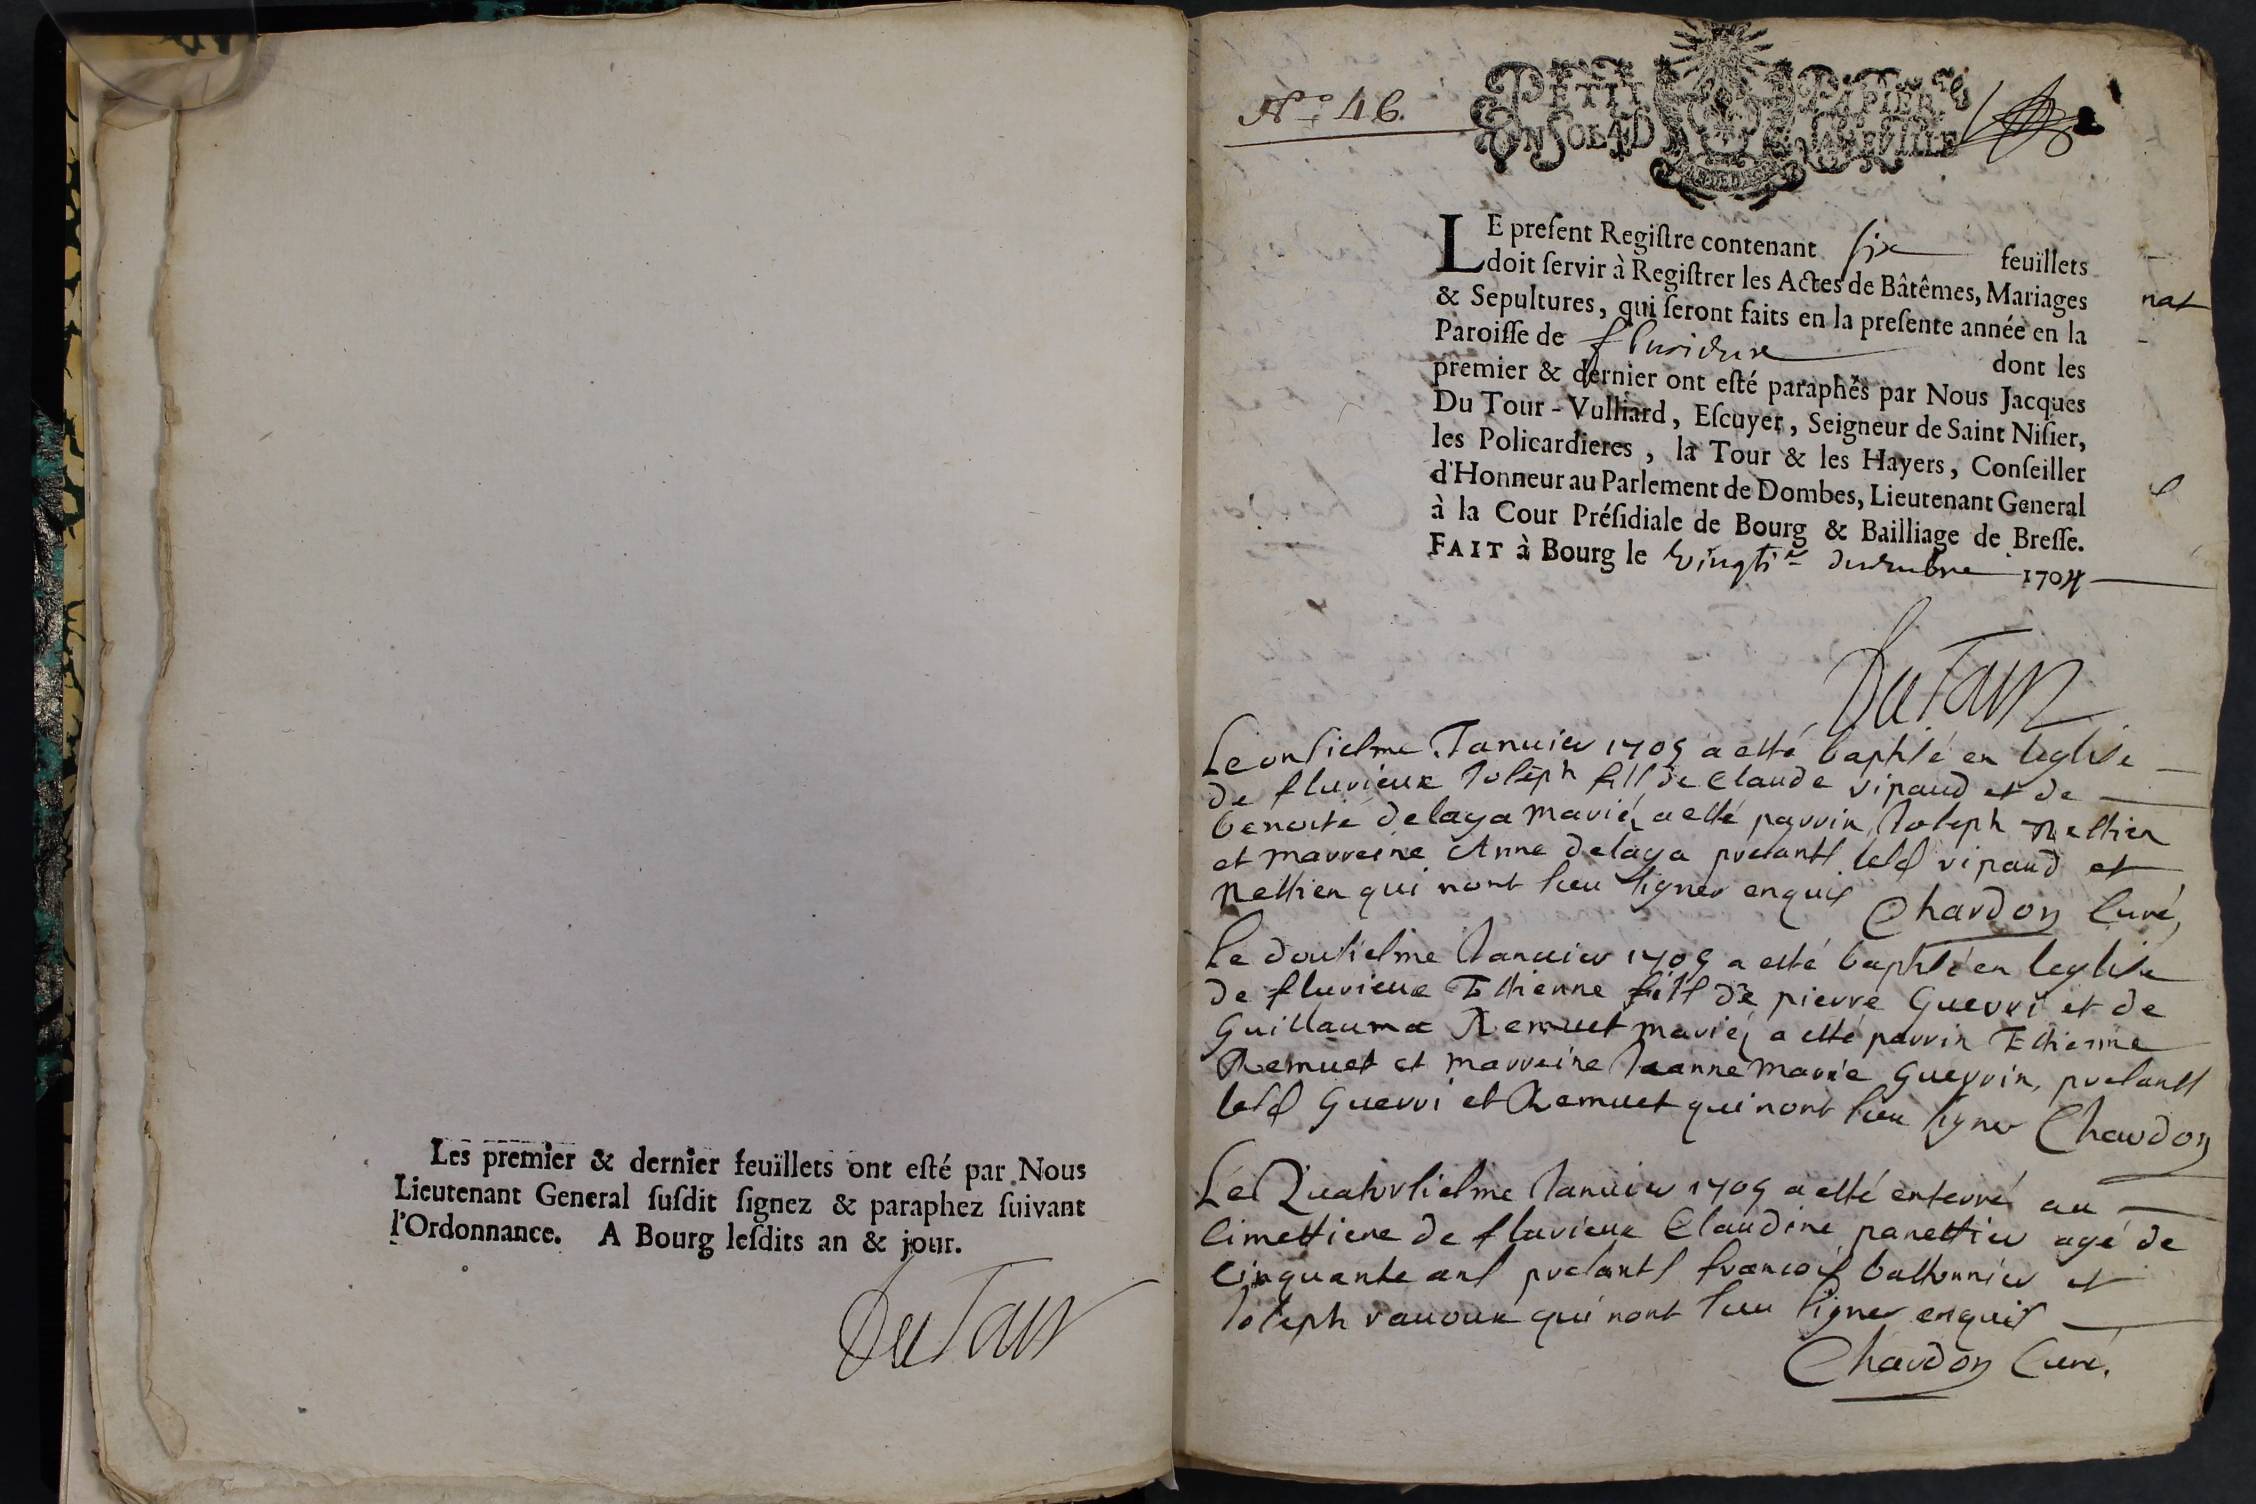 Les premier & dernier feuïllets ont eſté par Nous
Lieutenant General ſuſdit ſignez & paraphez ſuivant
l'Ordonnance. A Bourg leſdits an & jour.
DuTour
N.o 46.
PETIT PAPIER
LE preſent Regiſtre contenant ſix feuïllets
doit ſervir à Regiſtrer les Actes de Bâtêmes, Mariages
& Sepultures, qui ſeront faits en la preſente année en la
Paroiſſe de fluvieux dont les
premier & dernier ont eſté paraphés par Nous Jacques
Du Tour-Vulliard, Eſcuyer, Seigneur de Saint Niſier,
les Policardieres, la Tour & les Hayers, Conſeiller
d'Honneur au Parlement de Dombes, Lieutenant General
à la Cour Préſidiale de Bourg & Bailliage de Breſſe.
FAIT à Bourg le vingtie decembre 1704
nat
DuTour
Le onsiesme Januier 1705 a esté baptisé en leglise
de fluvieux Joseph fils de Claude ripaud et de
benoite delaya mariés a esté parrin Joseph
et marreine Anne delaya presants lesd ripaud et
qui nont sceu signer enquis Chardon Curé,
Le dousiesme Januier 1705 a esté baptisé en leglise
de fluvieux Estienne fils de pierre Guerri et de
Guillauma Remuet mariés a esté parrin Estienne
Remuet et marreine Jeanne Marie Guerrin, presants
lesd Guerri et Remuet qui nont sceu signer Chardon
Le Quatorsiesme Januier 1705 a esté enterré au
Cimettiere de fluvieux Claudine panettier agé de
Cinquante ans presants francois bastonnier et
Joseph ravoux qui nont sceu signer enquis
Chardon Curé.